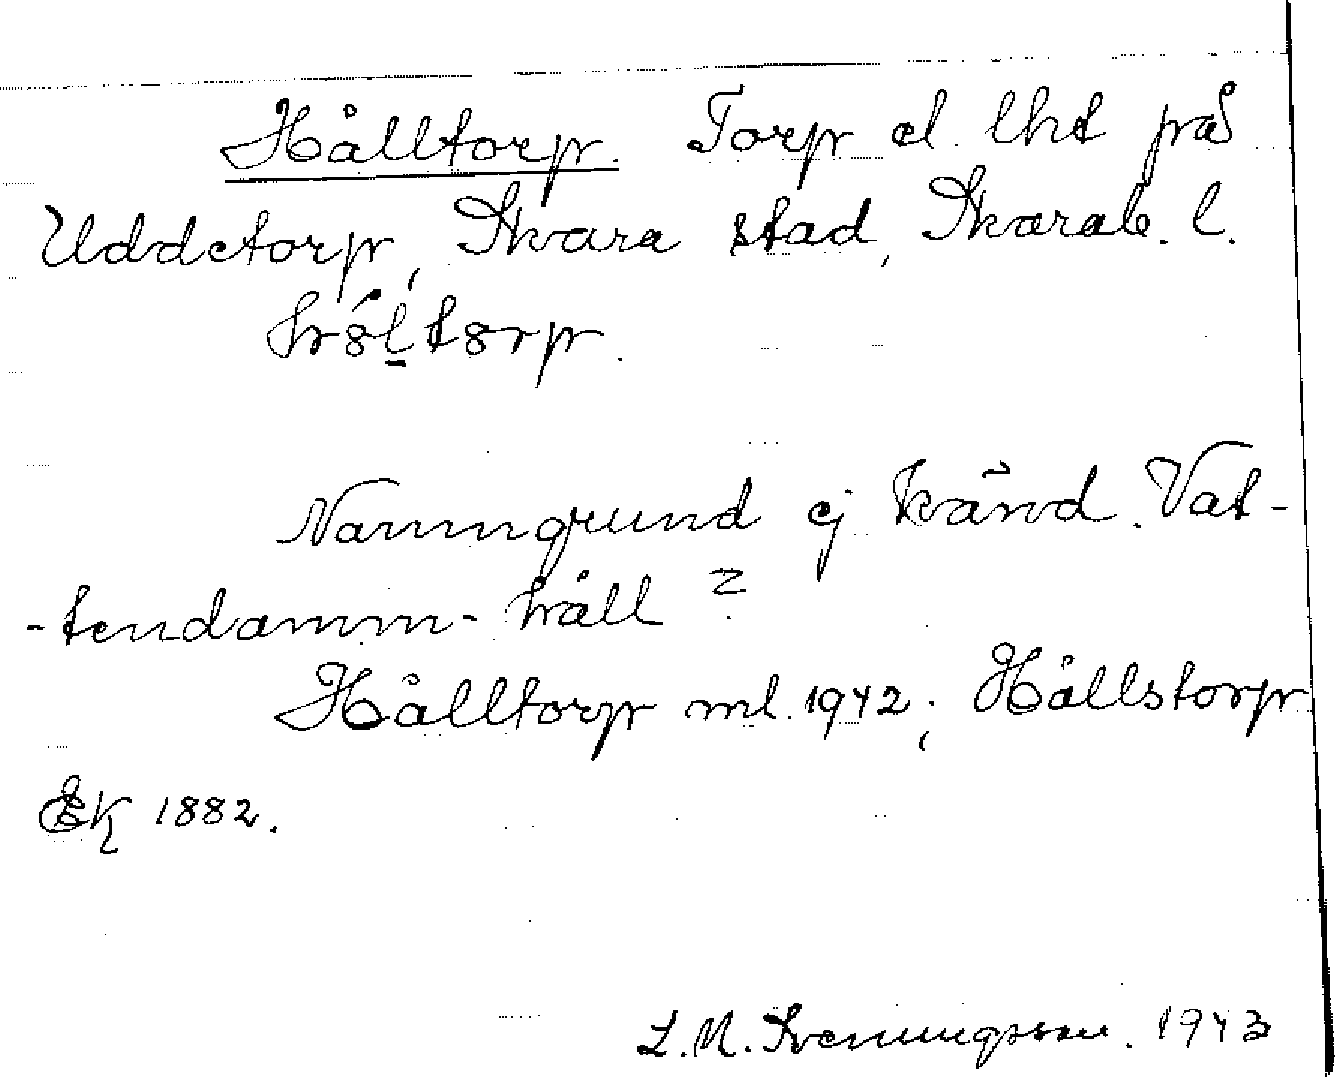 Hålltorp. Torp el. lht på
Uddetorp, Skara stad, Skarab. l.
Namngrund ej känd. Vat-
-tendamm-håll?
Hålltorp ml. 1942; Hållstorp
EK 1882.
L. M. Svenungsson. 1943